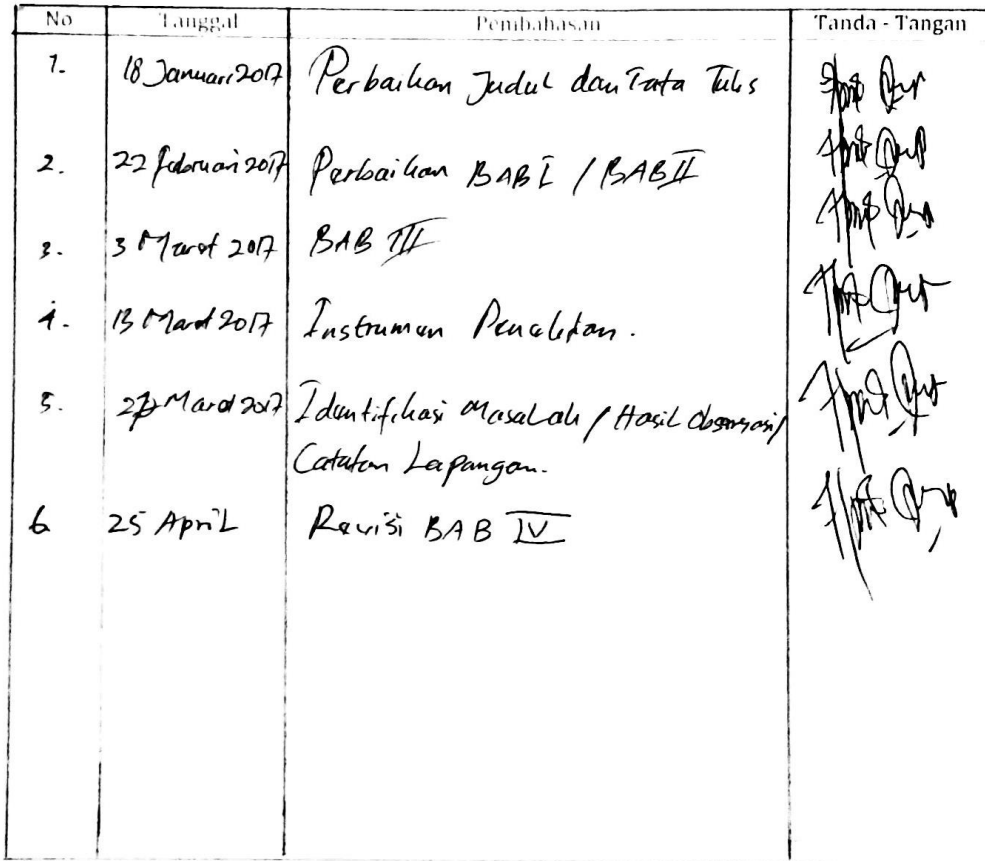 No Tanggal Pembahasan Tanda - Tangan
1. 18 Januari 2017 Perbaikan Judul dan Tata Tulis
2. 22 februari 2017 Perbaikan BAB I / BAB II
3. 3 Maret 2017 BAB III
4. 13 Maret 2017 Instrumen Penelitian.
5. Maret 2017 Identifikasi Masalah / Hasil Observasi /
Catatan Lapangan.
6 25 April Revisi BAB IV